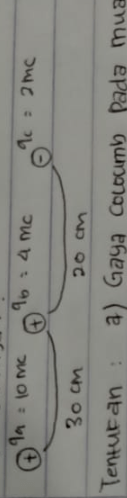 qa = 10 mc qb = 4 mc qc = 2mc
+ + -
30 cm 20 cm
Tentukan : a) Gaya cocoumb pada mua